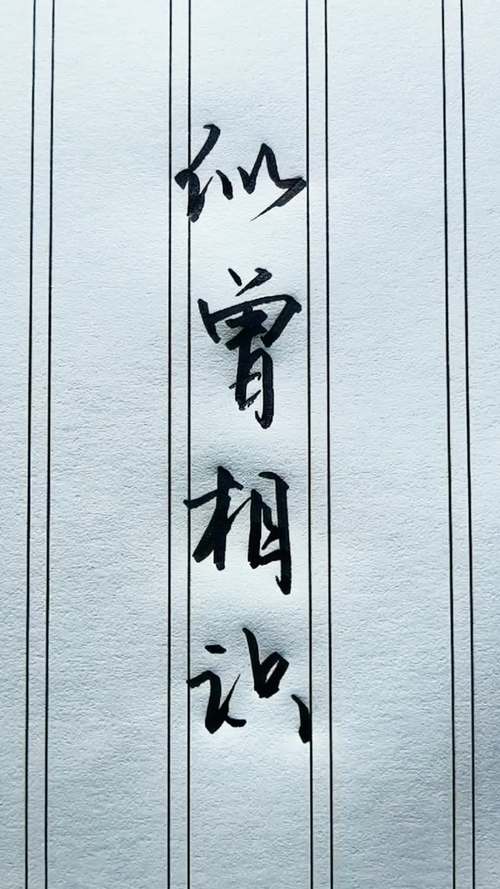 似曾相识